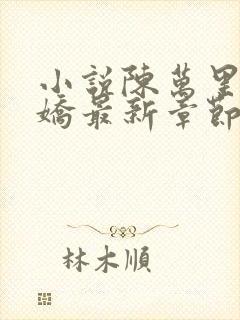 小說陳萬里
嬌最新章節
林木順